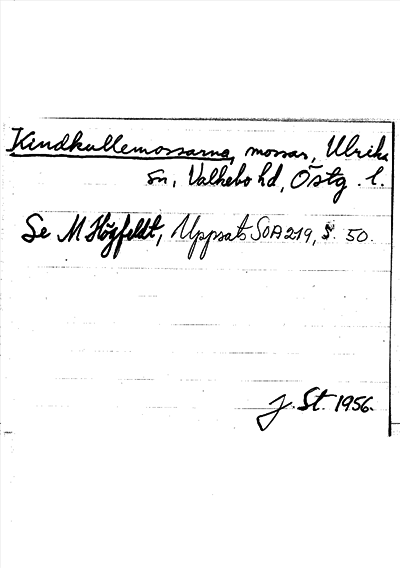 Kindkullemossarna, mossar, Ulrika
sn, Valkebo hd, Östg. l.
Se M Högfeldt, Uppsats SOA 219, s. 50.
J. St. 1956.